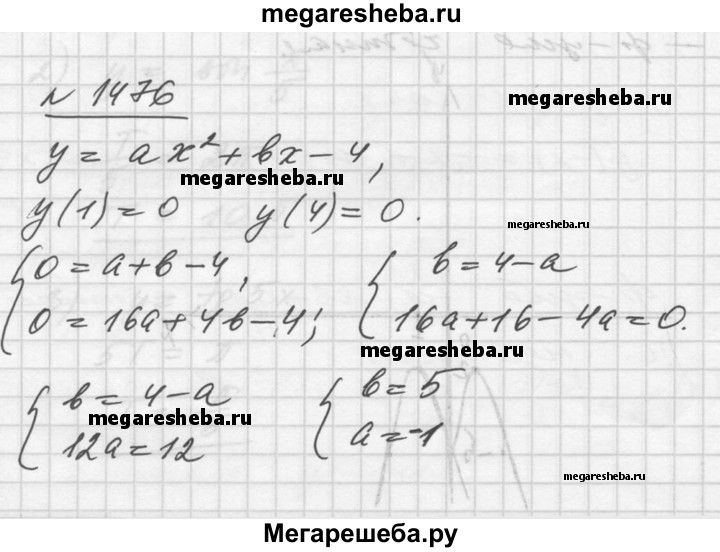 megaresheba.ru
№ 1476
megaresheba.ru
y = ax² + bx - 4,
megaresheba.ru
y(1) = 0 y(4) = 0.
megaresheba.ru
{ 0 = a + b - 4, { b = 4 - a
0 = 16a + 4b - 4; 16a + 16 - 4a = 0.
megaresheba.ru
{ b = 4 - a { b = 5
megaresheba.ru
12a = 12 a = -1
megaresheba.ru
Мегарешеба.ру